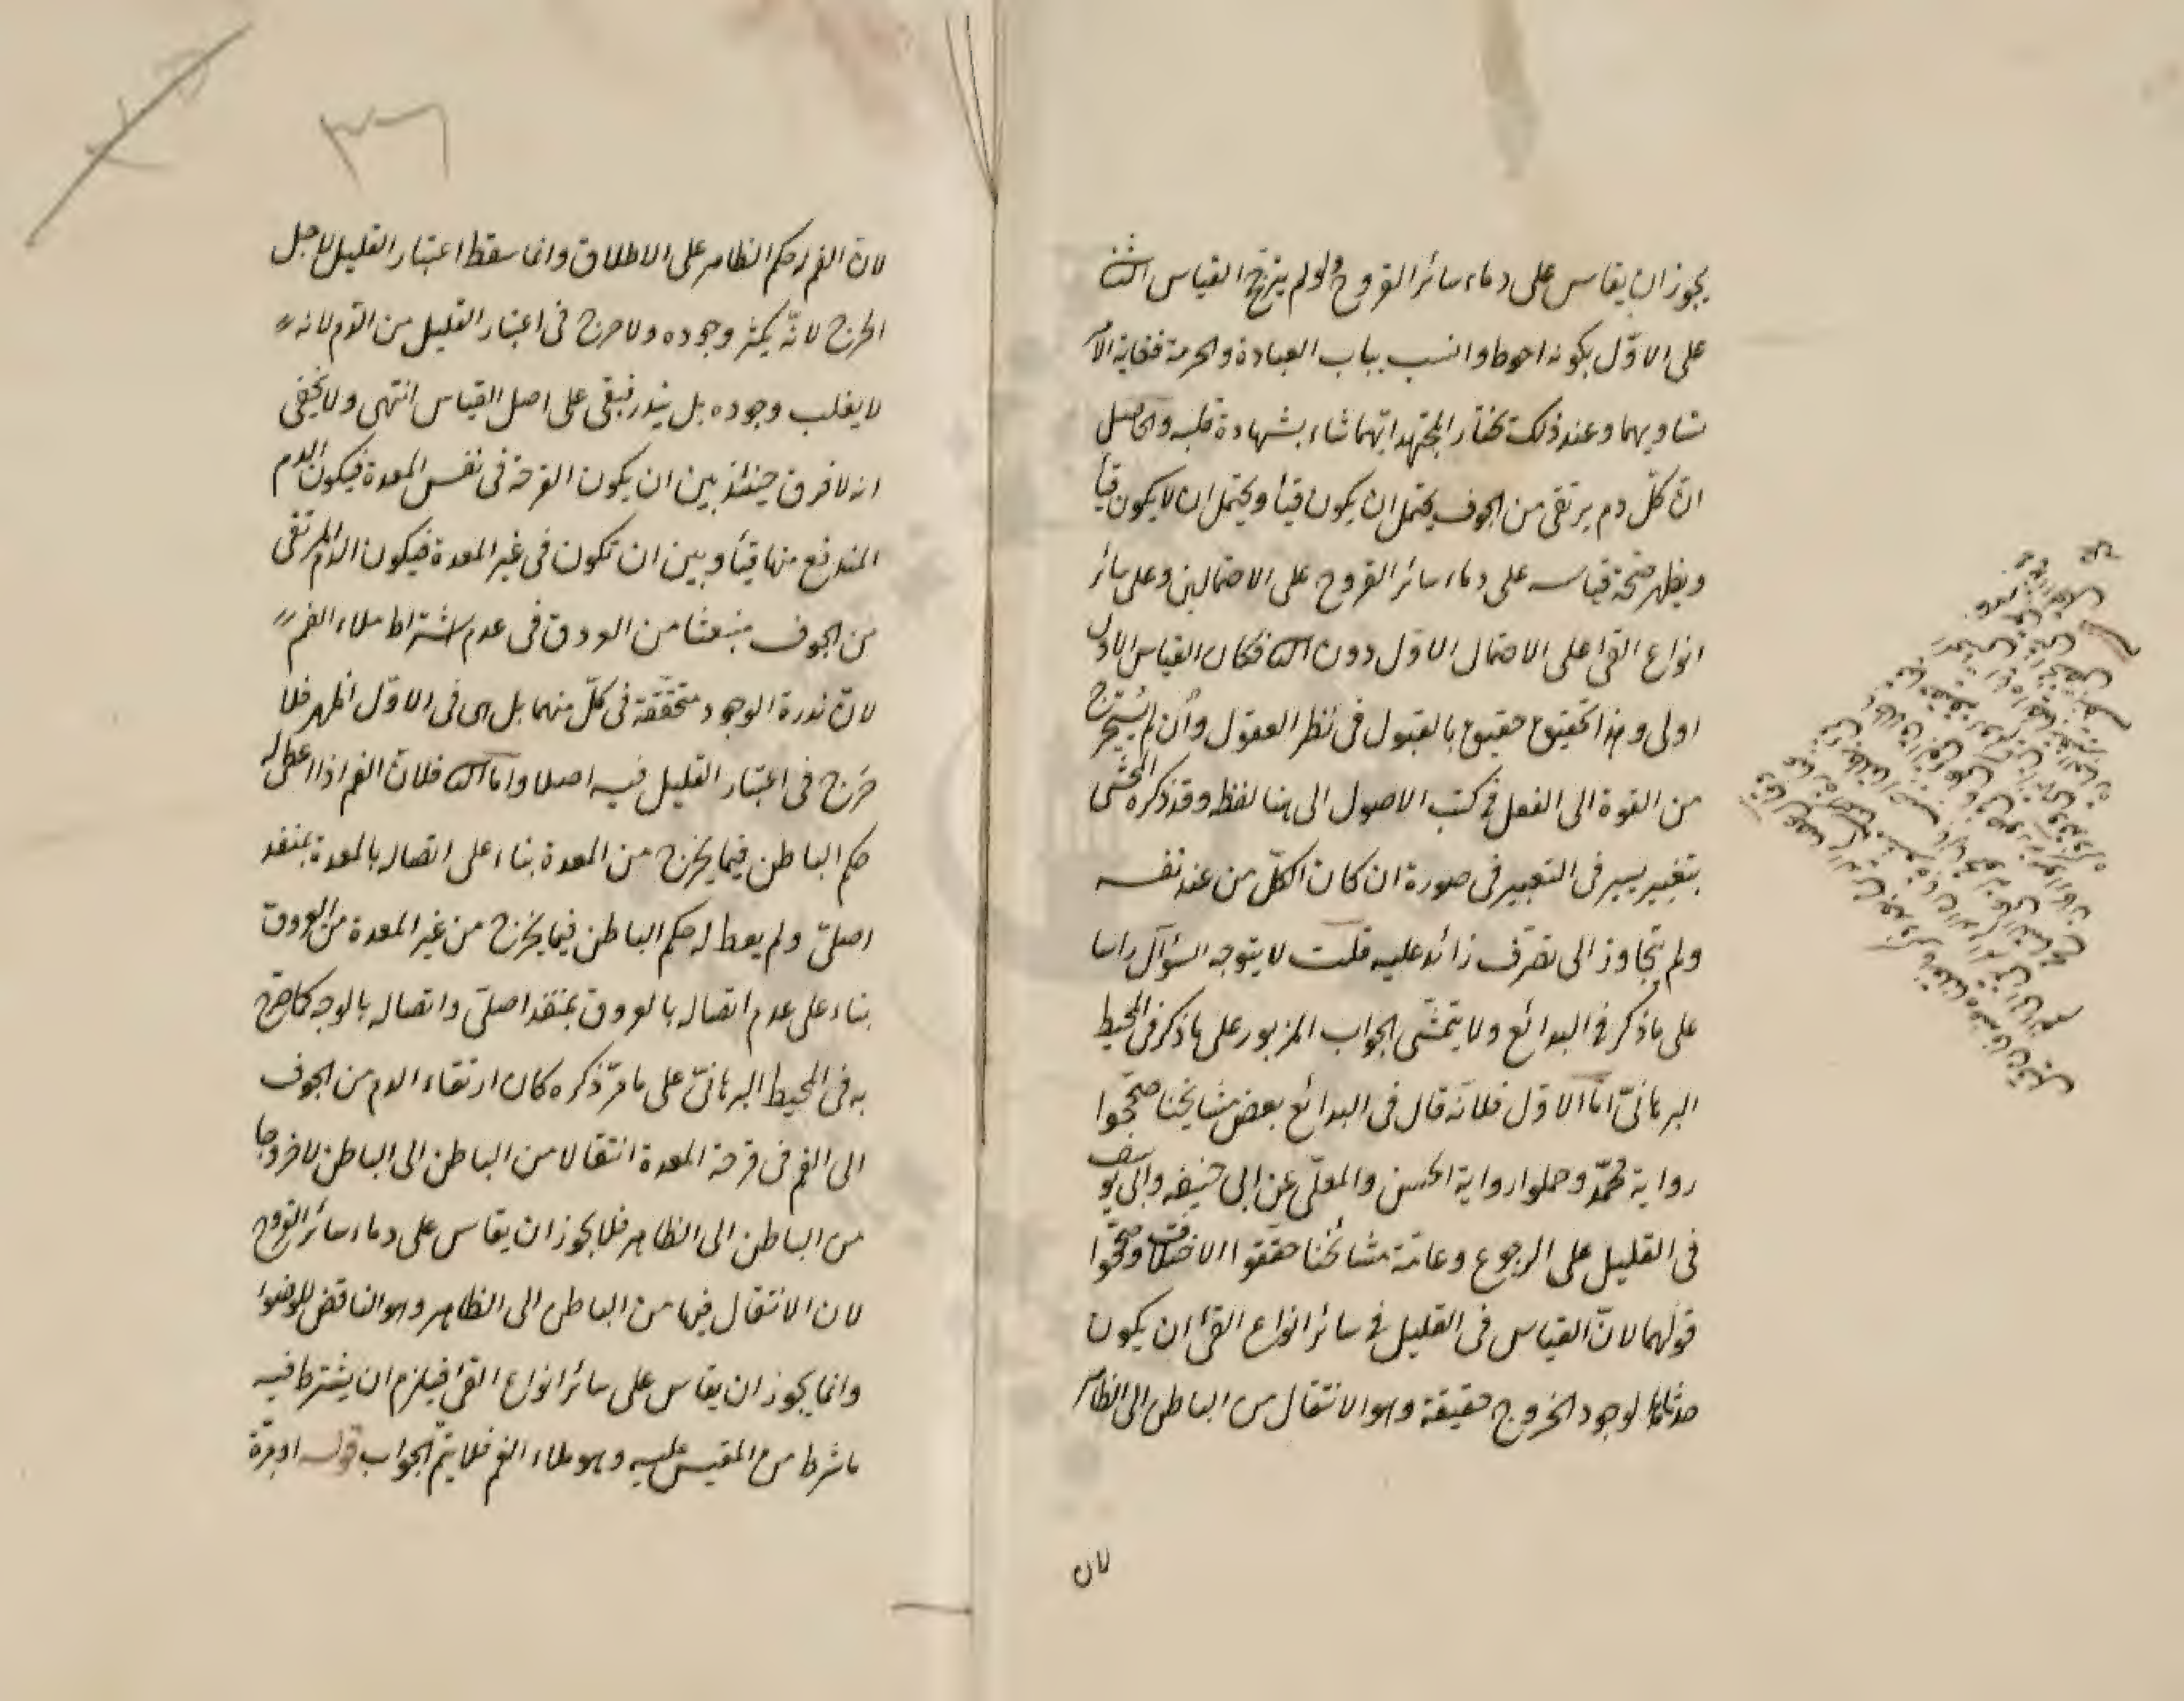 يجوز ان يقاس على دماء سائر القروح ولو لم يترجح القياس الثانى
على الاوّل بكونه احوط وانسب بباب العبادة والحرمة فغاية الامر
تساويهما وعند ذلك يختار المجتهد ايّهما شاء بشهادة قلبه والحاصل
انّ كلّ دم يرتقى من الجوف يحتمل ان يكون قيأ ويحتمل ان لا يكون قيأ
ويظهر صحّة قياسه على دماء سائر القروح على الاحتمالين وعلى سائر
انواع القئ على الاحتمال الاوّل دون الثانى فكان القياس الاوّل
اولى وهذا تحقيق حقيق بالقبول فى نظر العقول وان لم يستخرج
من القوة الى الفعل فى كتب الاصول الى هنا لفظه وقد ذكره المحشى
بتغيير يسير فى التعبير فى صورة ان كان الكلّ من عند نفسه
ولم يتجاوز الى تصرّف زائد عليه قلت لا يتوجه السؤال راسا
على ما ذكر فى البدائع ولا يتمشّى الجواب المزبور على ما ذكر فى المحيط
البرهانىّ امّا الاوّل فلانّه قال فى البدائع بعض مشايخنا صحّحوا
رواية محمّد وحملوا رواية الحسن والمعلّى عن ابى حنيفه وابى يوسف
فى القليل على الرجوع وعامّة مشائخنا حقّقوا الاختلاف وصحّحوا
قولهما لانّ القياس فى القليل فى سائر انواع القئ ان يكون
حدثا لوجود الخروج حقيقة وهو الانتقال من الباطن الى الظاهر
لان
٣٦
لانّ الفم له حكم الظاهر على الاطلاق وانما سقط اعتبار القليل لاجل
الحرج لانّه يكثر وجوده ولا حرج فى اعتبار القليل من الدّم لانه
لا يغلب وجوده بل يندر فبقى على اصل القياس انتهى ولا يخفى
انه لا فرق حينئذ بين ان يكون القرحة فى نفس المعدة فيكون الدم
المندفع منها قيأ وبين ان تكون فى غير المعدة فيكون الدم المرتقى
من الجوف منبعثا من العروق فى عدم اشتراط ملاء الفم
لانّ ندرة الوجود متحقّقة فى كلّ منهما بل هى فى الاوّل اظهر فلا
حرج فى اعتبار القليل فيه اصلا وامّا الثانى فلانّ الفم اذا اعطى له
حكم الباطن فيما يخرج من المعدة بناء على اتصاله بالمعدة بمنفذ
اصلىّ ولم يعط له حكم الباطن فيما يخرج من غير المعدة من العروق
بناء على عدم اتصاله بالعروق بمنفذ اصلىّ واتصاله بالوجه كما صرّح
به فى المحيط البرهانىّ على ما مرّ ذكره كان ارتقاء الدم من الجوف
الى الفم فى قرحة المعدة انتقالا من الباطن الى الباطن لا خروجا
من الباطن الى الظاهر فلا يجوز ان يقاس على دماء سائر القروح
لان الانتقال فيها من الباطن الى الظاهر وهو الناقض للوضوء
وانما يجوز ان يقاس على سائر انواع القئ فيلزم ان يشترط فيه
ما شرط من المقيس عليه وهو ملاء الفم فلا يتمّ الجواب قوله او مرّة